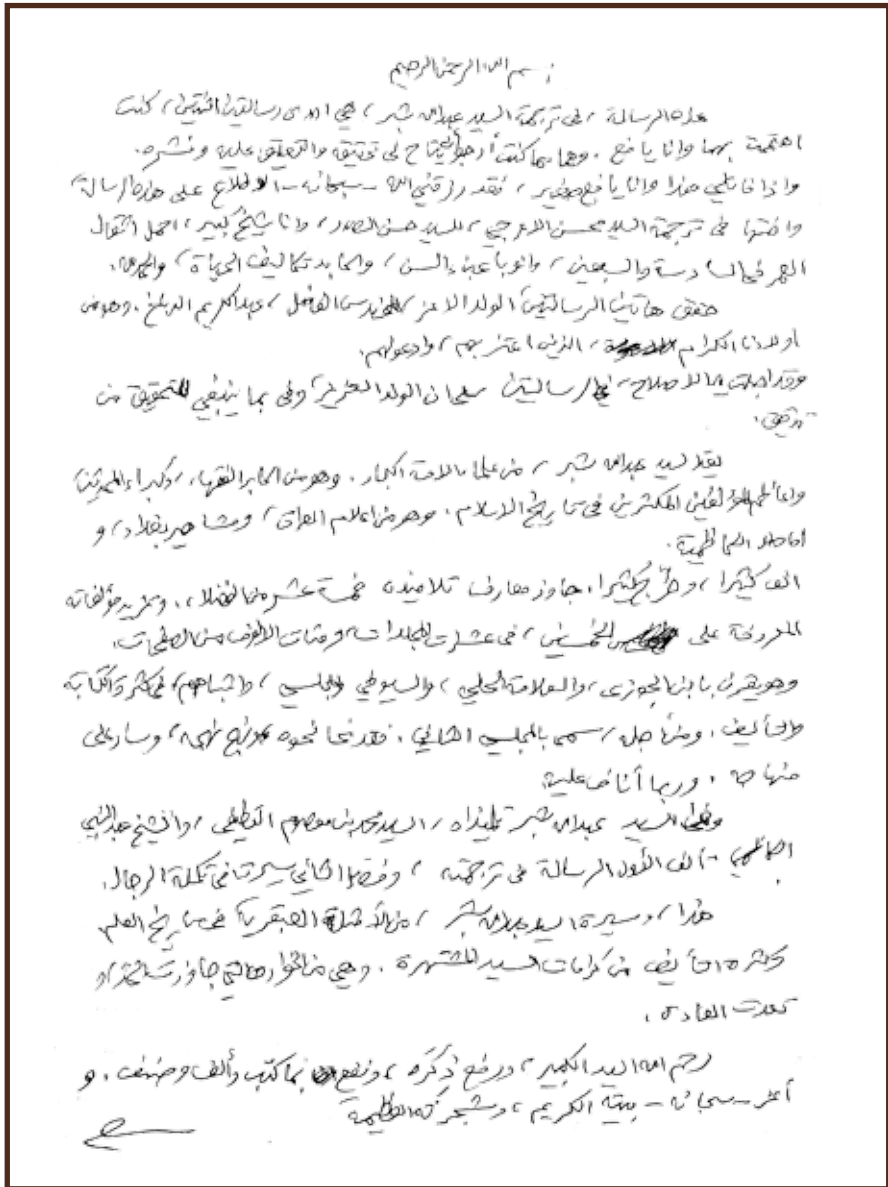 بسم الله الرحمن الرحيم
هذه الرسالة، في ترجمة السيد عبدالله شبر، هي احدى رسالتين اثنتين، كنت
اهتممت بهما وانا يافع. وهما مما كنت أرجو يحتاج الى تحقيقه والتعليق عليه ونشره.
واذا فاتني هذا وانا يافع صغير، فقد رزقني الله - سبحانه - الاطلاع على هذه الرسالة،
واختها في ترجمة السيد محسن الاعرجي، للسيد حسن الصدر، وانا شيخ كبير، احمل اثقال
العمر في السادسة والسبعين، وانوء بأعباء السن، واكابد تكاليف الحياة، والحمد لله.
حقق هاتين الرسالتين الولد الاعز، المهندس الفاضل، عبدالكريم الدباغ. وهو من
اولادنا الكرام، الذين اعتز بهم، وادعو لهم.
وقد اجلت يد الاصلاح، في الرسالتين. سلمان الولد العزيز، وفى بما ينبغي للتحقيق من
تدقيق.
يعد السيد عبدالله شبر، من علماء الامة الكبار. وهو من اكابر الفقهاء، وكبراء المحدثين،
واعاظم المؤلفين المكثرين في تاريخ الاسلام. وهو من اعلام العراق، ومشاهير بغداد، و
اماجد الكاظمية.
الف كثيرا، وخرّج كثيرا، جاوز معارف تلاميذه خمسة عشر من الفضلاء، وتزيد مؤلفاته
المعروفة على الخمسين، في عشرات المجلدات، ومئات الالوف من الصفحات.
وهو يقرن بابن الجوزي، والعلامة الحلي، والسيوطي والمجلسي، واشباههم، في كثرة الكتابة
والتأليف. ومن أجله، سمي بالمجلسي الثاني. فقد نحا نحوه، ونهج نهجه، وسار على
منهاجه. وربما أناف عليه.
وفى السيد عبدالله شبر تلميذاه، السيد محمد بن معصوم القطيفي، والشيخ عبدالنبي
الكاظمي - ألف الأول الرسالة في ترجمته، وفصل الثاني سيرته في تكملة الرجال.
هذا، وسيرة السيد عبدالله شبر، من الأمثلة العبقرية في تاريخ العلم
وكثرة التأليف من كرامات السيد المشتهرة. وهي من الخوارق التي جاوزت
تعدت العادة.
رحم الله السيد الكبير، ورفع ذكره، ونفع بما كتب وألف وصنف. و
أعز - سبحانه - بيته الكريم، وشجرته العظيمة